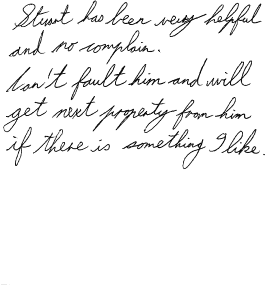 Stuart has been very helpful
and no complain.
Can't fault him and will
get next property from him
if there is something I like.